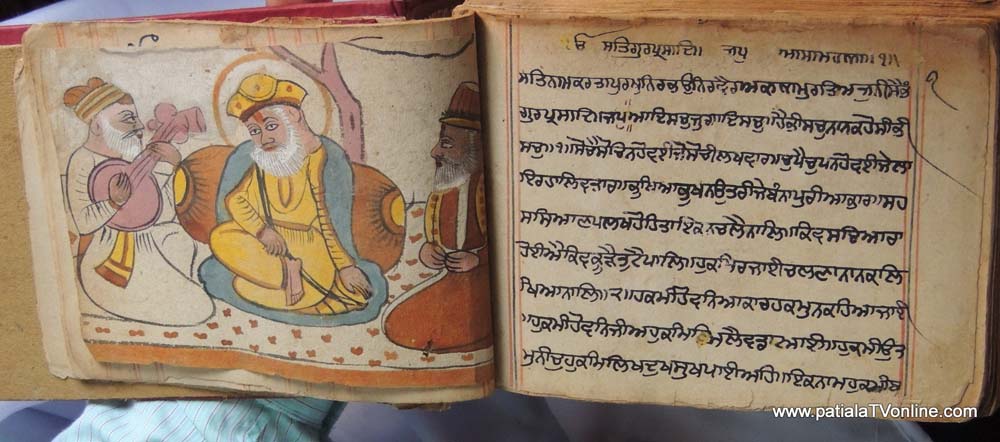 ੴ ਸਤਿਗੁਰਪ੍ਰਸਾਦਿ॥ ਜਪੁ ਆਸਾਮਹਲਾ॥੧॥
ਸਤਿਨਾਮਕਰਤਾਪੁਰਖੁਨਿਰਭਉਨਿਰਵੈਰਅਕਾਲਮੂਰਤਿਅਜੂਨੀਸੈਭੰ
ਗੁਰਪ੍ਰਸਾਦਿ॥ਜਪੁ॥ਆਦਿਸਚੁਜੁਗਾਦਿਸਚੁ॥ਹੈਭੀਸਚੁਨਾਨਕਹੋਸੀਭੀ
ਸਚੁ॥੧॥ਸੋਚੈਸੋਚਿਨਹੋਵਈਜੇਸੋਚੀਲਖਵਾਰ॥ਚੁਪੈਚੁਪਨਹੋਵਈਜੇਲਾ
ਇਰਹਾਲਿਵਤਾਰ॥ਭੁਖਿਆਭੁਖਨਉਤਰੀਜੇਬੰਨਾਪੁਰੀਆਭਾਰ॥ਸਹ
ਸਸਿਆਣਪਲਖਹੋਹਿਤਾਇਕਨਚਲੈਨਾਲਿ॥ਕਿਵਸਚਿਆਰਾ
ਹੋਈਐਕਿਵਕੂੜੈਤੁਟੈਪਾਲਿ॥ਹੁਕਮਿਰਜਾਈਚਲਣਾਨਾਨਕਲਿ
ਖਿਆਨਾਲਿ॥੧॥ਹੁਕਮੀਹੋਵਨਿਆਕਾਰਹੁਕਮੁਨਕਹਿਆਜਾਈ
॥ਹੁਕਮੀਹੋਵਨਿਜੀਅਹੁਕਮਿਮਿਲੈਵਡਿਆਈ॥ਹੁਕਮੀਉਤ
ਮੁਨੀਚੁਹੁਕਮਿਲਿਖਦੁਖਸੁਖਪਾਈਅਹਿ॥ਇਕਨਾਮਹੁਕਮੀਬ
www.patialaTVonline.com